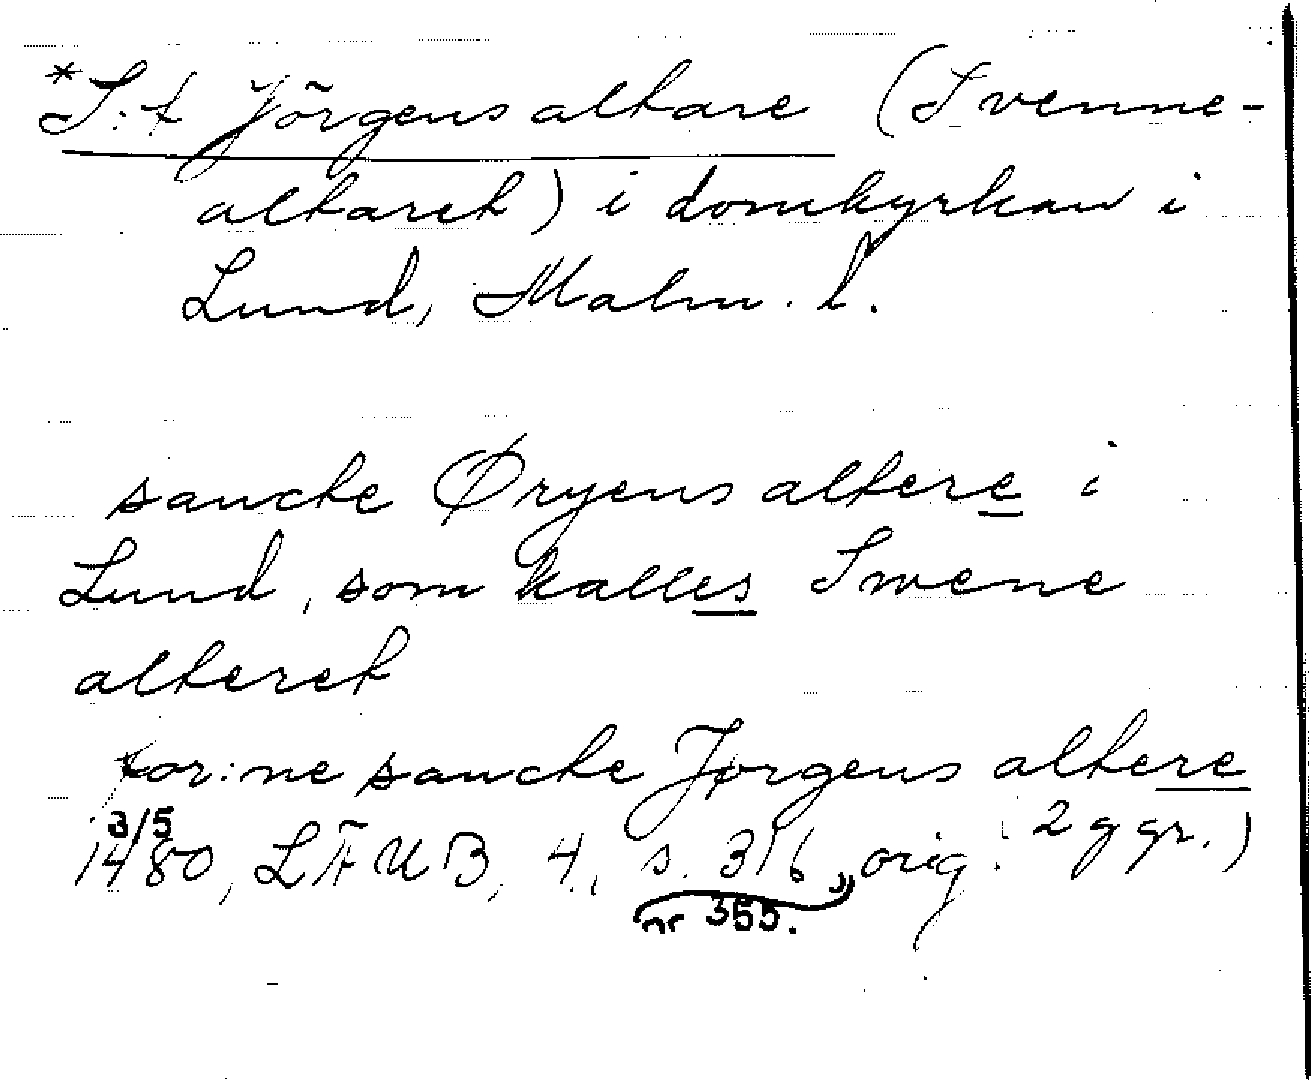 *S:t Jörgens altare (Svenne-
altaret) i domkyrkan i
Lund, Malm. l.
sancte Øryens altere i
Lund, som kalles Swene
alteret
for:ne sancte Jørgens altere
3/5 2 ggr.)
1480, LÄUB, 4, s. 316, orig.
nr 355.